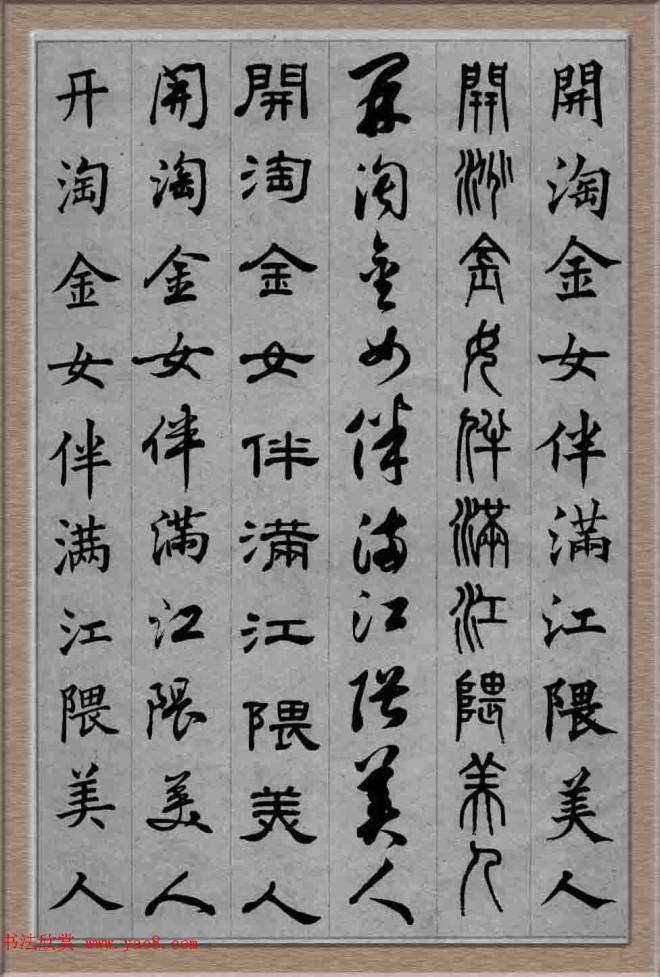 開淘金女伴滿江隈美人
開淘金女伴滿江隈美人
開淘金女伴滿江隈美人
開淘金女伴滿江隈美人
開淘金女伴滿江隈美人
开淘金女伴满江隈美人
书法欣赏 www.yac8.com